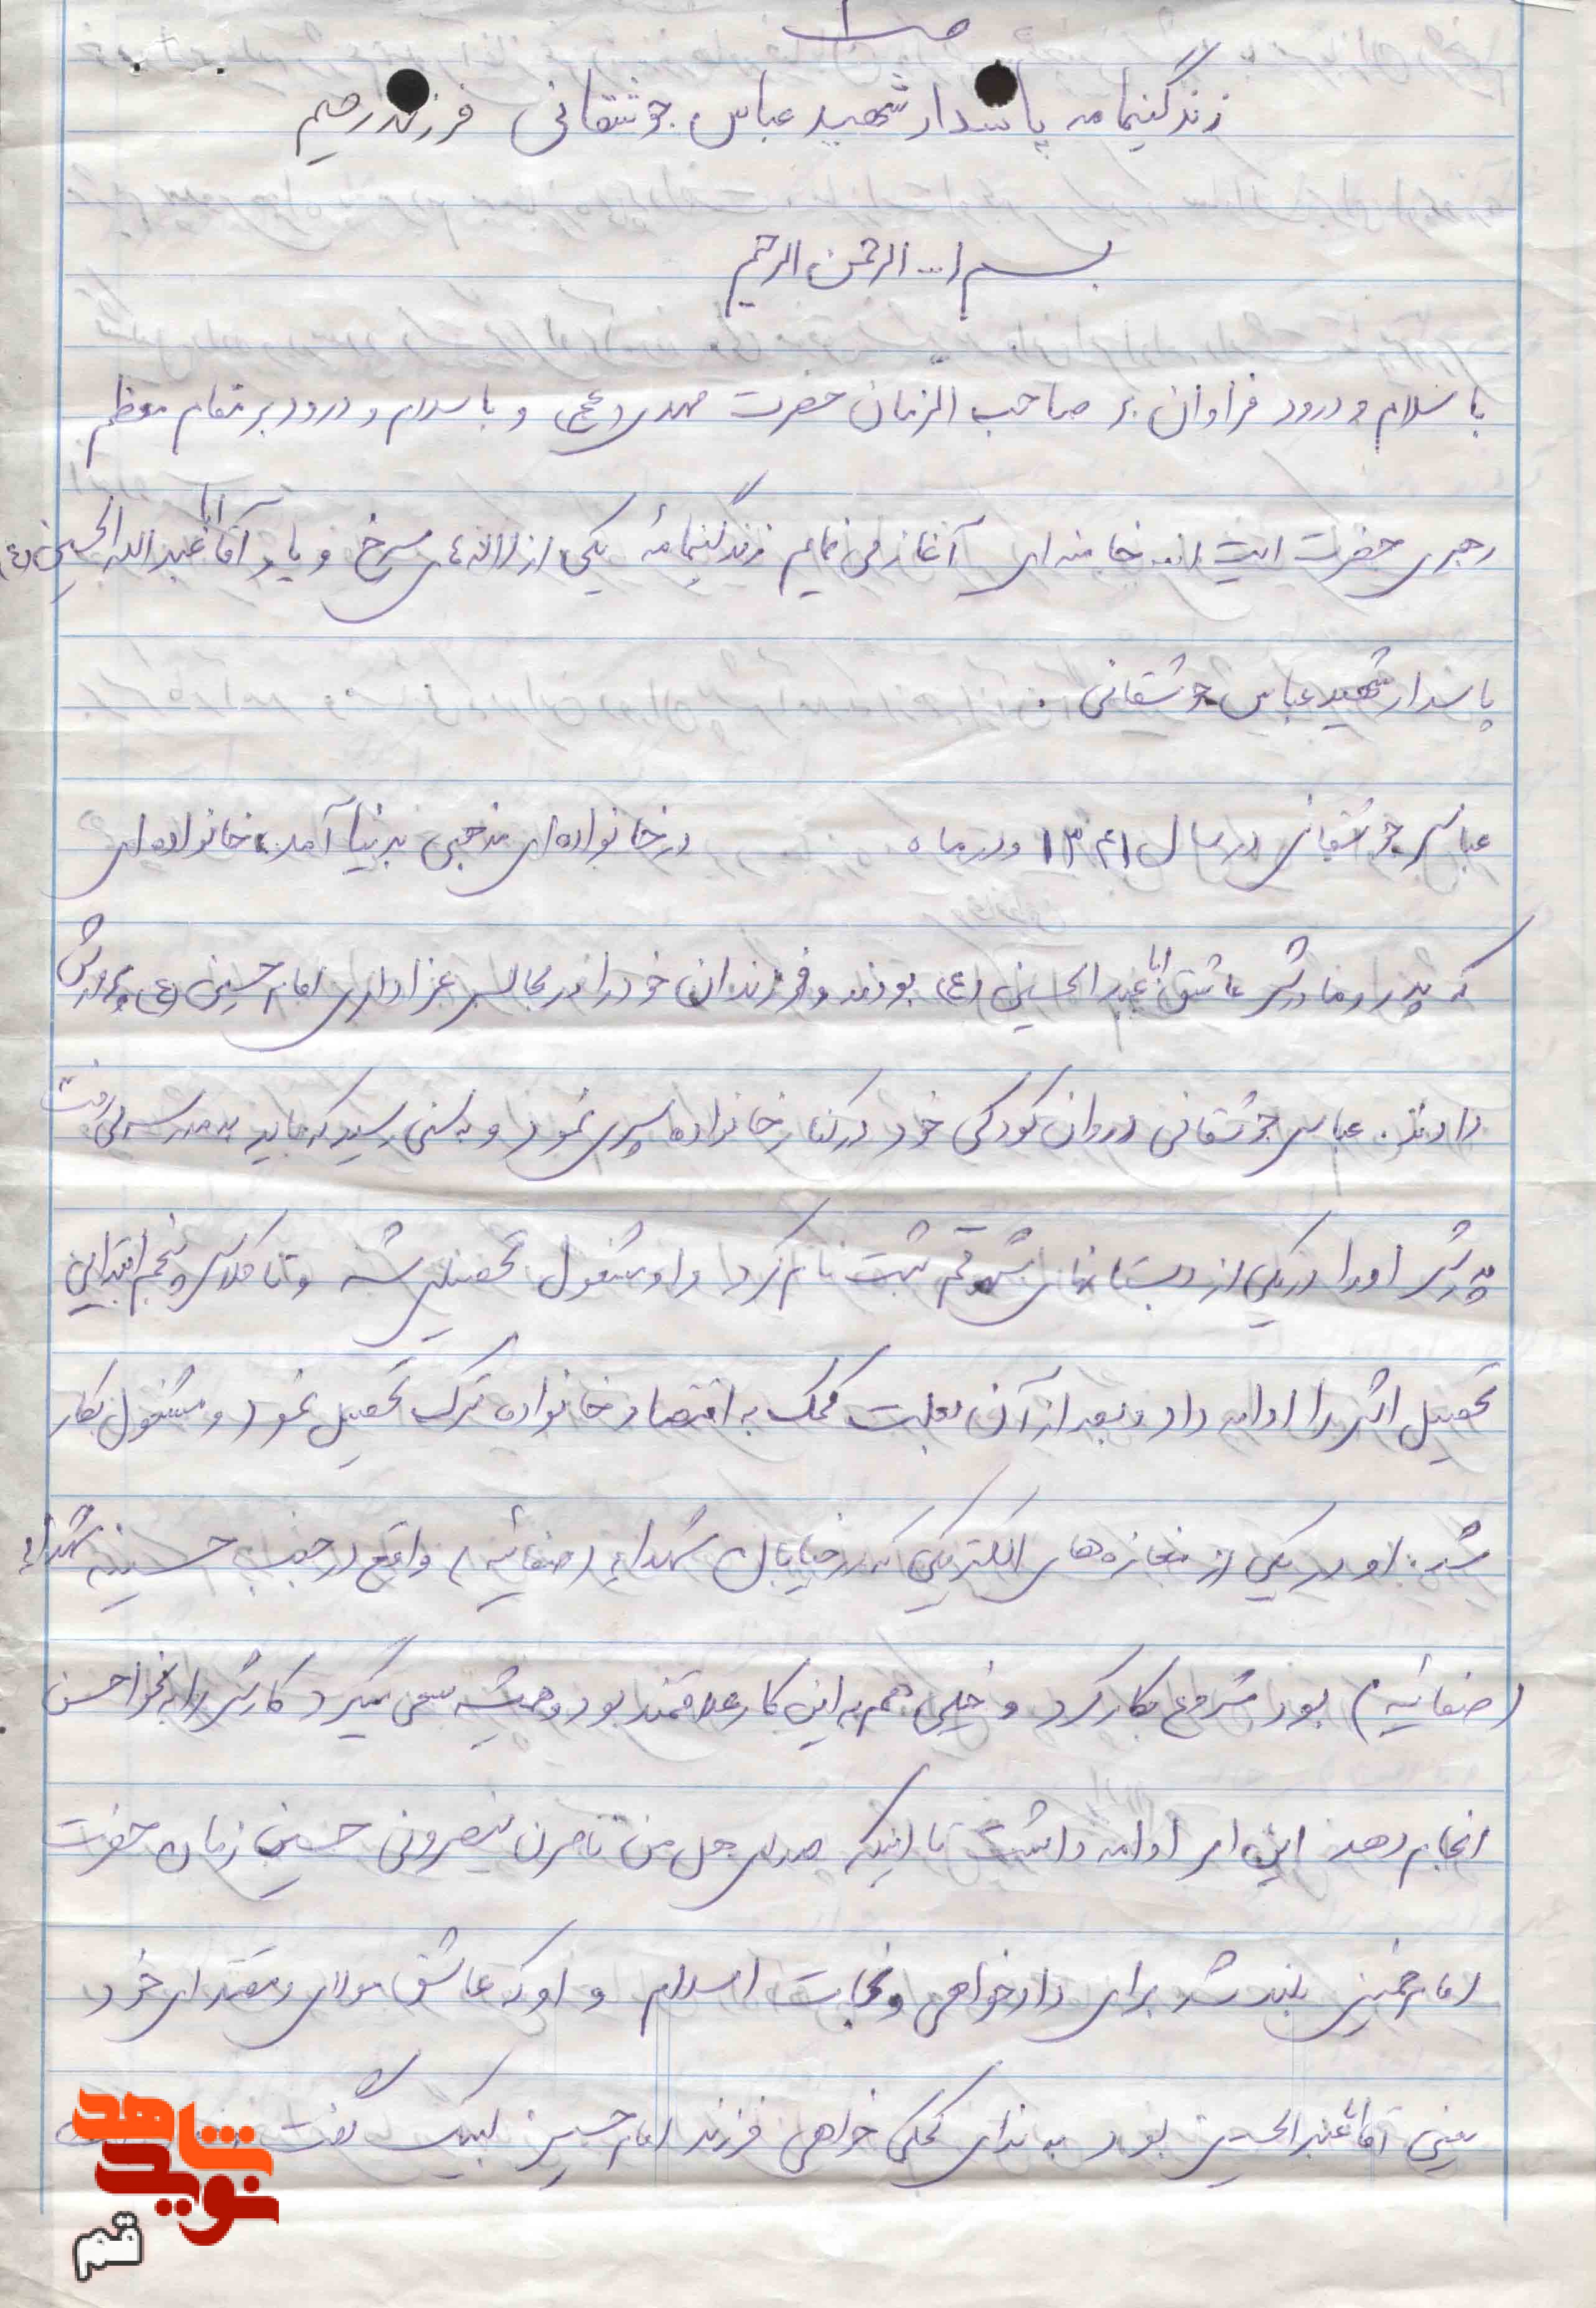 ص ۱
زندگینامه پاسدار شهید عباس جوشقانی فرزند رحیم
بسم ا... الرحمن الرحیم
با سلام و درود فراوان بر صاحب الزمان حضرت مهدی (عج) و با سلام و درود بر مقام معظم
رهبری حضرت ایت ا... خامنه ای آغاز می نمایم زندگینامه یکی از لاله های سرخ و یاور آقا ابا عبدالله الحسین (ع)
پاسدار شهید عباس جوشقانی .
عباس جوشقانی در سال ۱۳۴۱ و در ماه در خانواده ای مذهبی بدنیا آمد، خانواده ای
که پدر و مادرش عاشق ابا عبدالحسین (ع) بودند و فرزندان خود را در مجالس عزاداری امام حسین (ع) پرورش
دادند. عباس جوشقانی دوران کودکی خود در کنار خانواده سپری نمود و به سنی رسید که باید به مدرسه می رفت
پدرش او را در یکی از دبستانهای شهر قم ثبت نام کرد و او مشغول تحصیل شد و تا کلاس پنجم ابتدایی
تحصیل اش را ادامه داد و بعد از آن بعلت کمک به اقتصاد خانواده ترک تحصیل نمود و مشغول بکار
شد. او در یکی از مغازه های الکتریکی که در خیابان شهداء (صفائیه) واقع در جنب حسینیه شهداء
(صفائیه) بود شروع بکار کرد و خیلی هم به این کار علاقمند بود و همیشه سعی میکرد کارش را به نحو احسن
انجام دهد این امر ادامه داشت تا اینکه صدای هل من ناصرن ینصرونی حسین زمان حضرت
امام خمینی بلند شد برای دادخواهی و نجات اسلام و او که عاشق مولای و مقتدای خود
یعنی آقا ابا عبدالحسین بود به ندای کمک خواهی فرزند امام حسین لبیک گفت
شاهد
نوید
قم